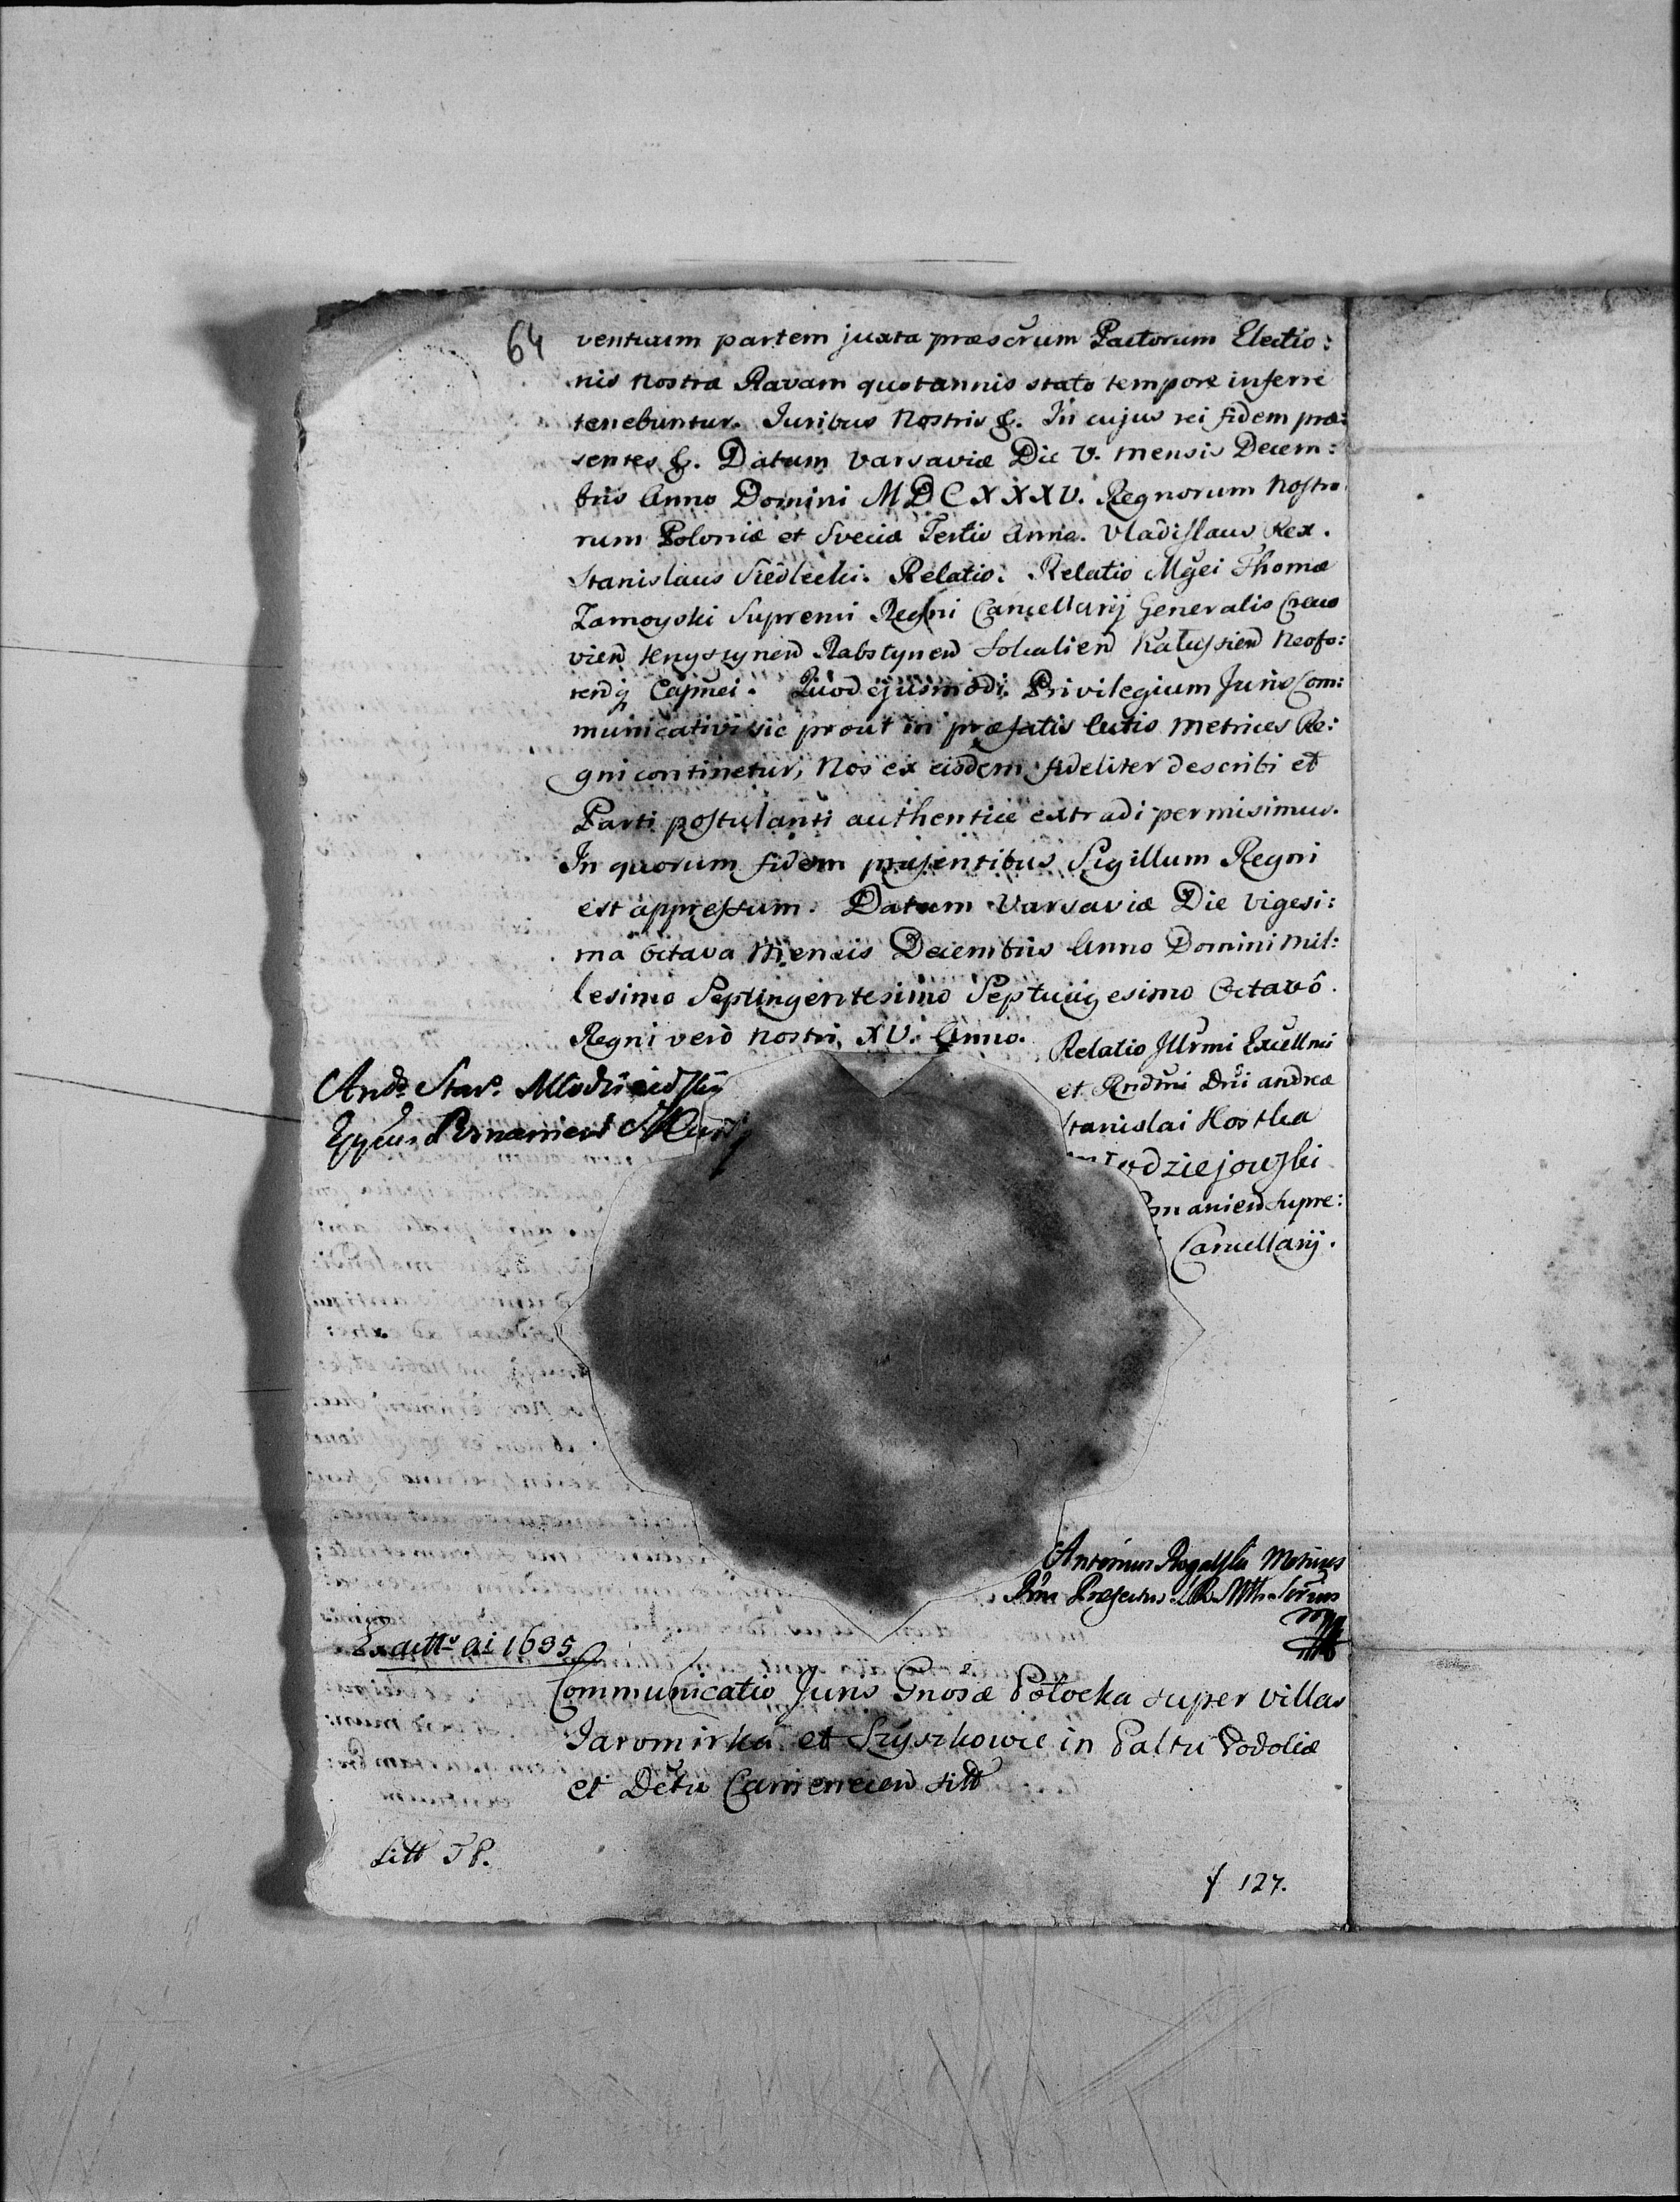 64 ventuum partem juxta præscrum Pactorum Electio:
nis Nostræ Ravam quotannis stato tempore inferre
tenebuntur. Juribus Nostris &. In cujus rei fidem præ:
sentes &. Datum Varsaviæ Die V. mensis Decem:
bris Anno Domini MDCXXXV. Regnorum Nostro
rum Poloniæ et Sveciæ Tertio Anno. Vladislaus Rex.
Stanislaus Siedlecki. Relatio. Relatio Mgci Thomæ
Zamoyski Supremi Regni Cancellarij Generalis Craco
vien Knyszynen Rabstynen Sokalien Kalussien Neofo:
ren q Capnei. Quod ejusmodi Privilegium Juris Com:
municativi sic prout in præfatis Actis Metrices Re:
gni continetur, Nos ex eisdem fideliter describi et
Parti postulanti authentice extradi permisimus.
In quorum fidem præsentibus Sigillum Regni
est appressum. Datum Varsaviæ Die Vigesi:
ma Octava Mensis Decembris Anno Domini Mil:
lesimo Septingentesimo Septuagesimo Octavô.
Regni verò Nostri XV. Anno.
Relatio Illrmi Excellmi
et Rndmi Dni Andreæ
Stanislai Kostka
Młodziejowski
Posnanien Supre:
Cancellarij.
And. Stan. Młodziejowski
Eppus Posnanien
Antonius Rogalski Metrices
Rni Præfectus S. R. Mtt. Srius
mpp
Ex actt. ai 1635
Communicatio Juris Gnosæ Potocka super villas
Jaromirka et Szyszkowce in Paltu Podoliæ
et Dctu Camenecen sitt
Litt TP.
f 127.